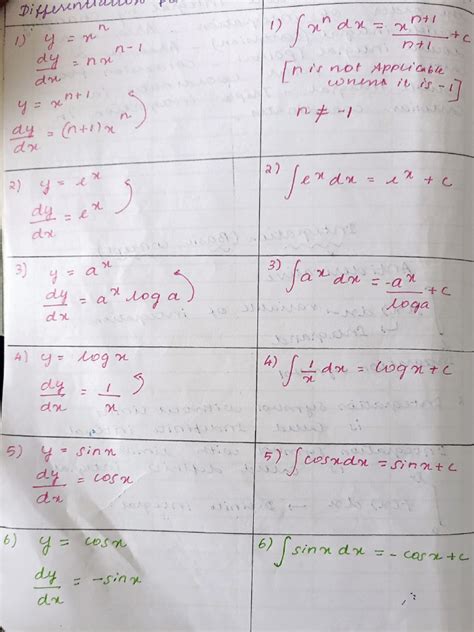 Differentiation
1) y = xⁿ
dy/dx = nxⁿ⁻¹
y = xⁿ⁺¹
dy/dx = (n+1)xⁿ
1) ∫xⁿ dx = xⁿ⁺¹/n+1 + c
[n is not applicable
when it is -1]
n ≠ -1
2) y = eˣ
dy/dx = eˣ
2) ∫eˣ dx = eˣ + c
3) y = aˣ
dy/dx = aˣ log a
3) ∫aˣ dx = aˣ/log a + c
4) y = log x
dy/dx = 1/x
4) ∫1/x dx = log x + c
5) y = sin x
dy/dx = cos x
5) ∫cos x dx = sin x + c
6) y = cos x
dy/dx = -sin x
6) ∫sin x dx = - cos x + c